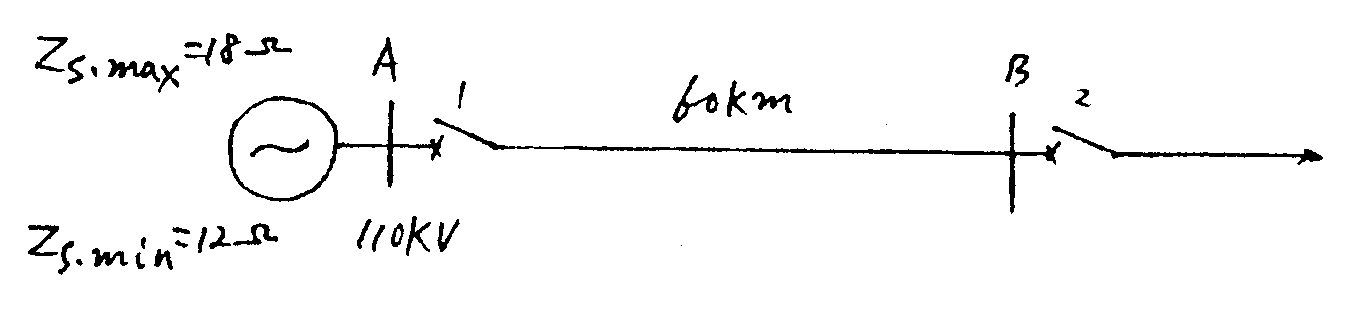 Zs.max=18Ω
A
1
60km
B
2
Zs.min=12Ω
110KV